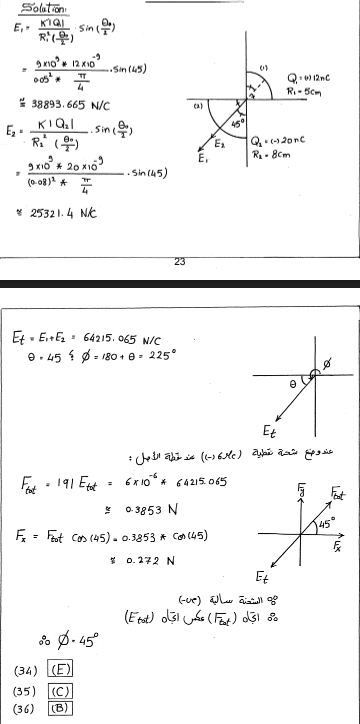 Solution:
E₁ = K|Q₁| / R₁² (θ₀/2) · sin(θ₀/2)
= 9×10⁹ * 12×10⁻⁹ / 0.05² * π/4 · sin(45)
≅ 38893.665 N/C
E₂ = K|Q₂| / R₂² (θ₀/2) · sin(θ₀/2)
= 9×10⁹ * 20×10⁻⁹ / (0.08)² * π/4 · sin(45)
≅ 25321.4 N/C
(1)
Q₁ = (+) 12nC
R₁ = 5cm
(2)
45°
Q₂ = (-) 20nC
R₂ = 8cm
E₂
E₁
23
Et = E₁+E₂ = 64215.065 N/C
θ = 45 & φ = 180 + θ = 225°
φ
θ
Et
عند وضع شحنة نقطية (-) 6μc عند نقطة الأصل :
Ftot = |q| Etot = 6×10⁻⁶ * 64215.065
≅ 0.3853 N
Fx = Ftot cos(45) = 0.3853 * cos(45)
≅ 0.272 N
Fy
Ftot
45°
Fx
Et
∵ الشحنة سالبة (-ve)
∴ اتجاه (Ftot) عكس اتجاه (Etot)
∴ φ = 45°
(34) (E)
(35) (C)
(36) (B)